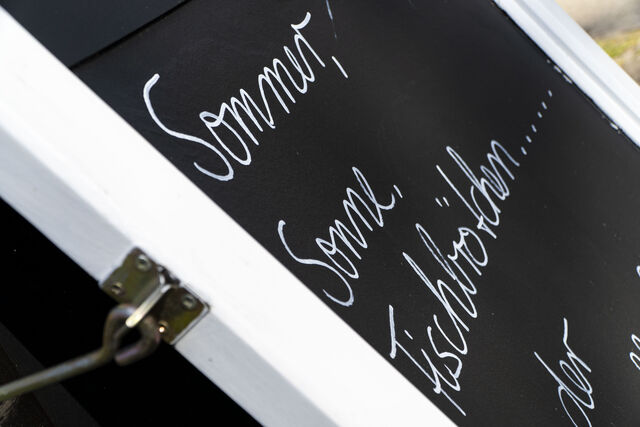 Sommer,
Sonne,
Fischbrötchen......
der